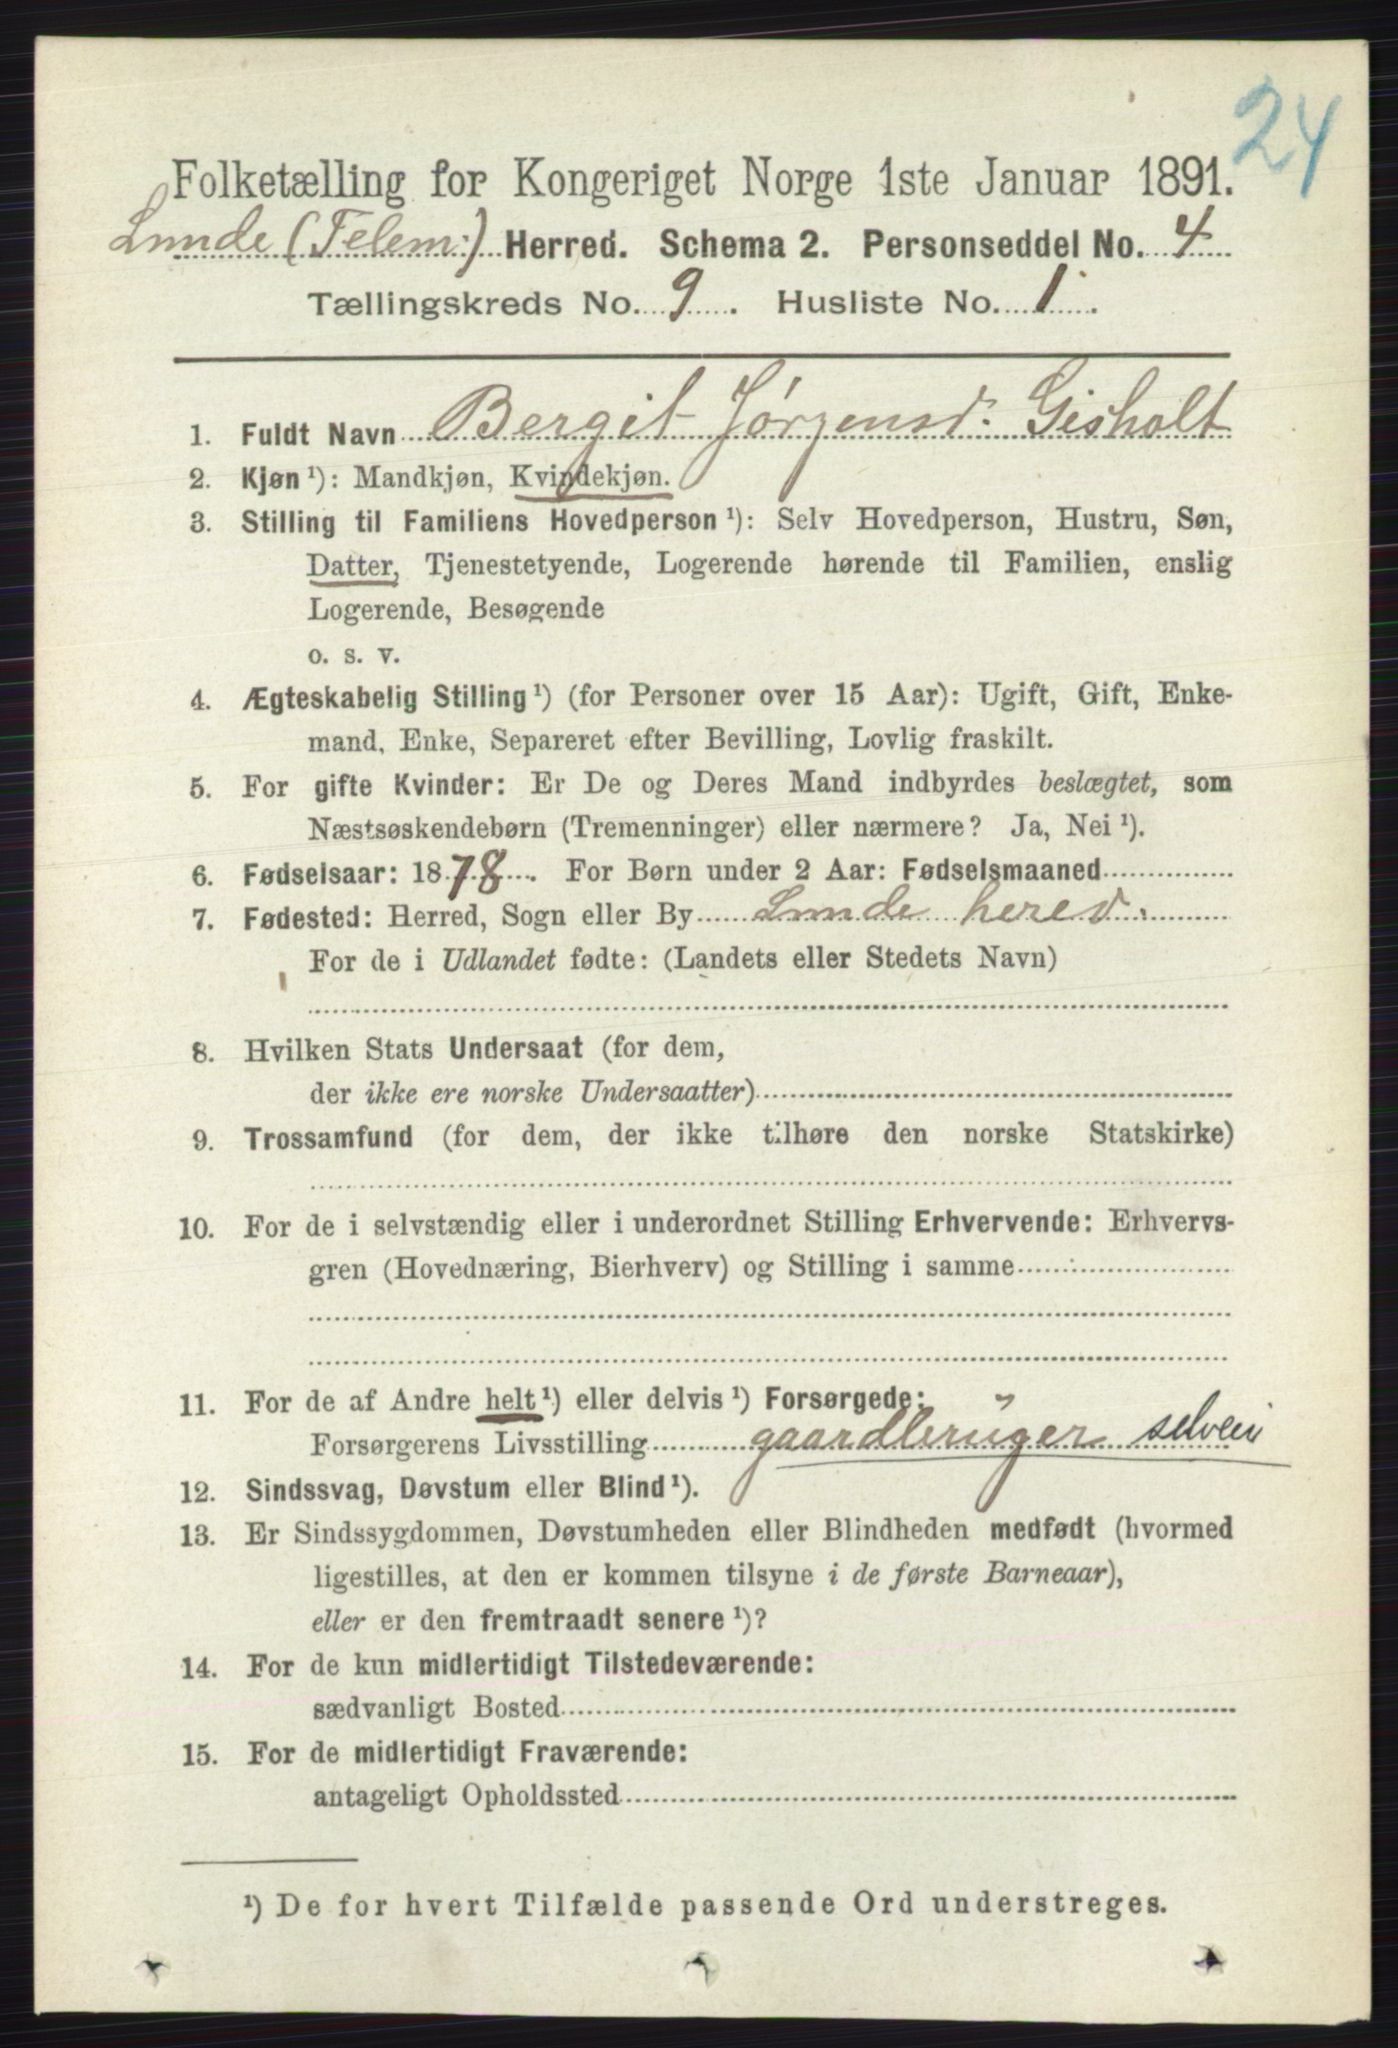 24
Folketælling for Kongeriget Norge 1ste Januar 1891.
Lunde (Telem:) Herred. Schema 2. Personseddel No. 4
Tællingskreds No. 9. Husliste No. 1.
1. Fuldt Navn Bergit Jørgensd: Gisholt
2. Kjøn ¹): Mandkjøn, Kvindekjøn.
3. Stilling til Familiens Hovedperson ¹): Selv Hovedperson, Hustru, Søn,
Datter, Tjenestetyende, Logerende hørende til Familien, enslig
Logerende, Besøgende
o. s. v.
4. Ægteskabelig Stilling ¹) (for Personer over 15 Aar): Ugift, Gift, Enke-
mand, Enke, Separeret efter Bevilling, Lovlig fraskilt.
5. For gifte Kvinder: Er De og Deres Mand indbyrdes beslægtet, som
Næstsøskendebørn (Tremenninger) eller nærmere? Ja, Nei ¹).
6. Fødselsaar: 1878. For Børn under 2 Aar: Fødselsmaaned
7. Fødested: Herred, Sogn eller By Lunde hered.
For de i Udlandet fødte: (Landets eller Stedets Navn)
8. Hvilken Stats Undersaat (for dem,
der ikke ere norske Undersaatter)
9. Trossamfund (for dem, der ikke tilhøre den norske Statskirke)
10. For de i selvstændig eller i underordnet Stilling Erhvervende: Erhvervs-
gren (Hovednæring, Bierhverv) og Stilling i samme
11. For de af Andre helt ¹) eller delvis ¹) Forsørgede:
Forsørgerens Livsstilling gaardbrüger selveie
12. Sindssvag, Døvstum eller Blind ¹).
13. Er Sindssygdommen, Døvstumheden eller Blindheden medfødt (hvormed
ligestilles, at den er kommen tilsyne i de første Barneaar),
eller er den fremtraadt senere ¹)?
14. For de kun midlertidigt Tilstedeværende:
sædvanligt Bosted
15. For de midlertidigt Fraværende:
antageligt Opholdssted
¹) De for hvert Tilfælde passende Ord understreges.